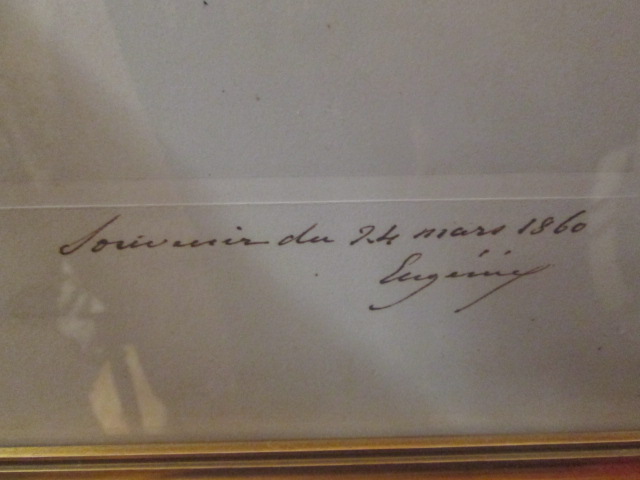 Souvenir du 24 mars 1860
Eugénie